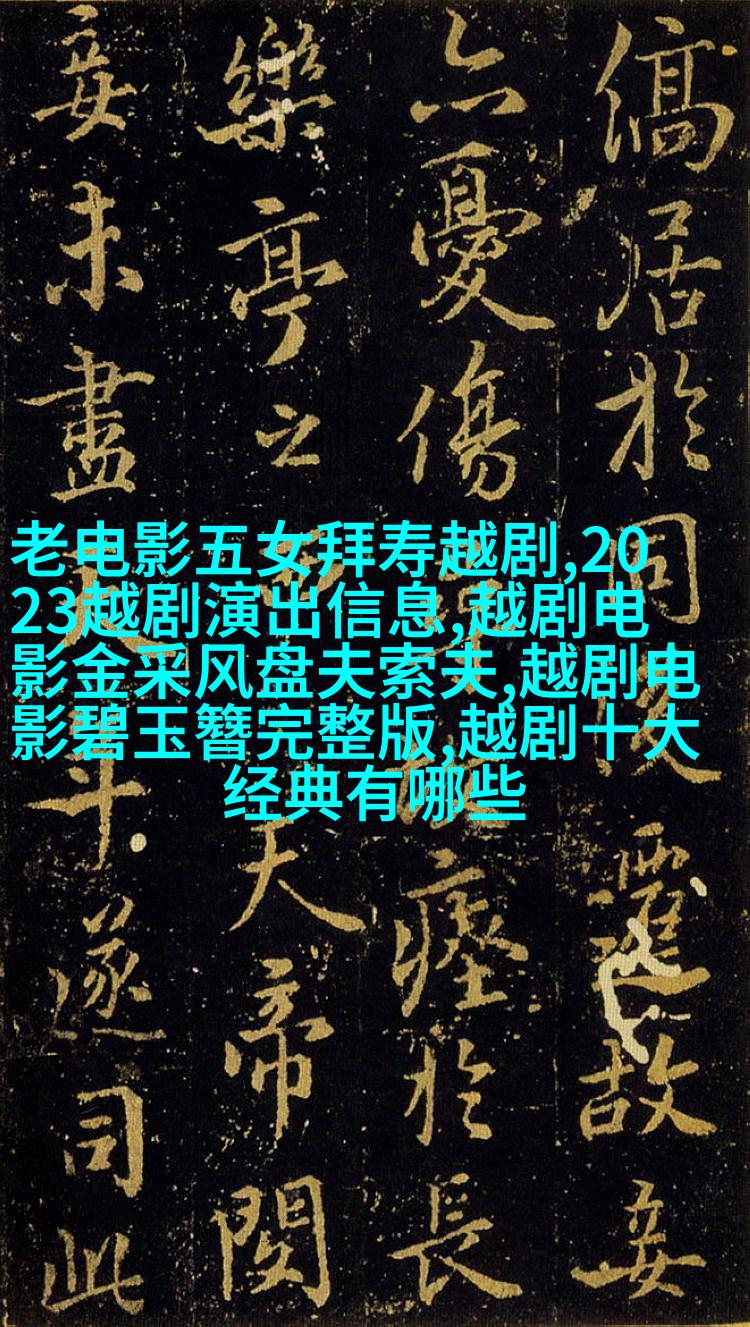 老电影五女拜寿越剧,20
23越剧演出信息,越剧电
影金采风盘夫索夫,越剧电
影碧玉簪完整版,越剧十大
经典有哪些
居於同故妾
亦憂傷瘞於長
樂亭之天帝閔
妾未盡斗遂司此